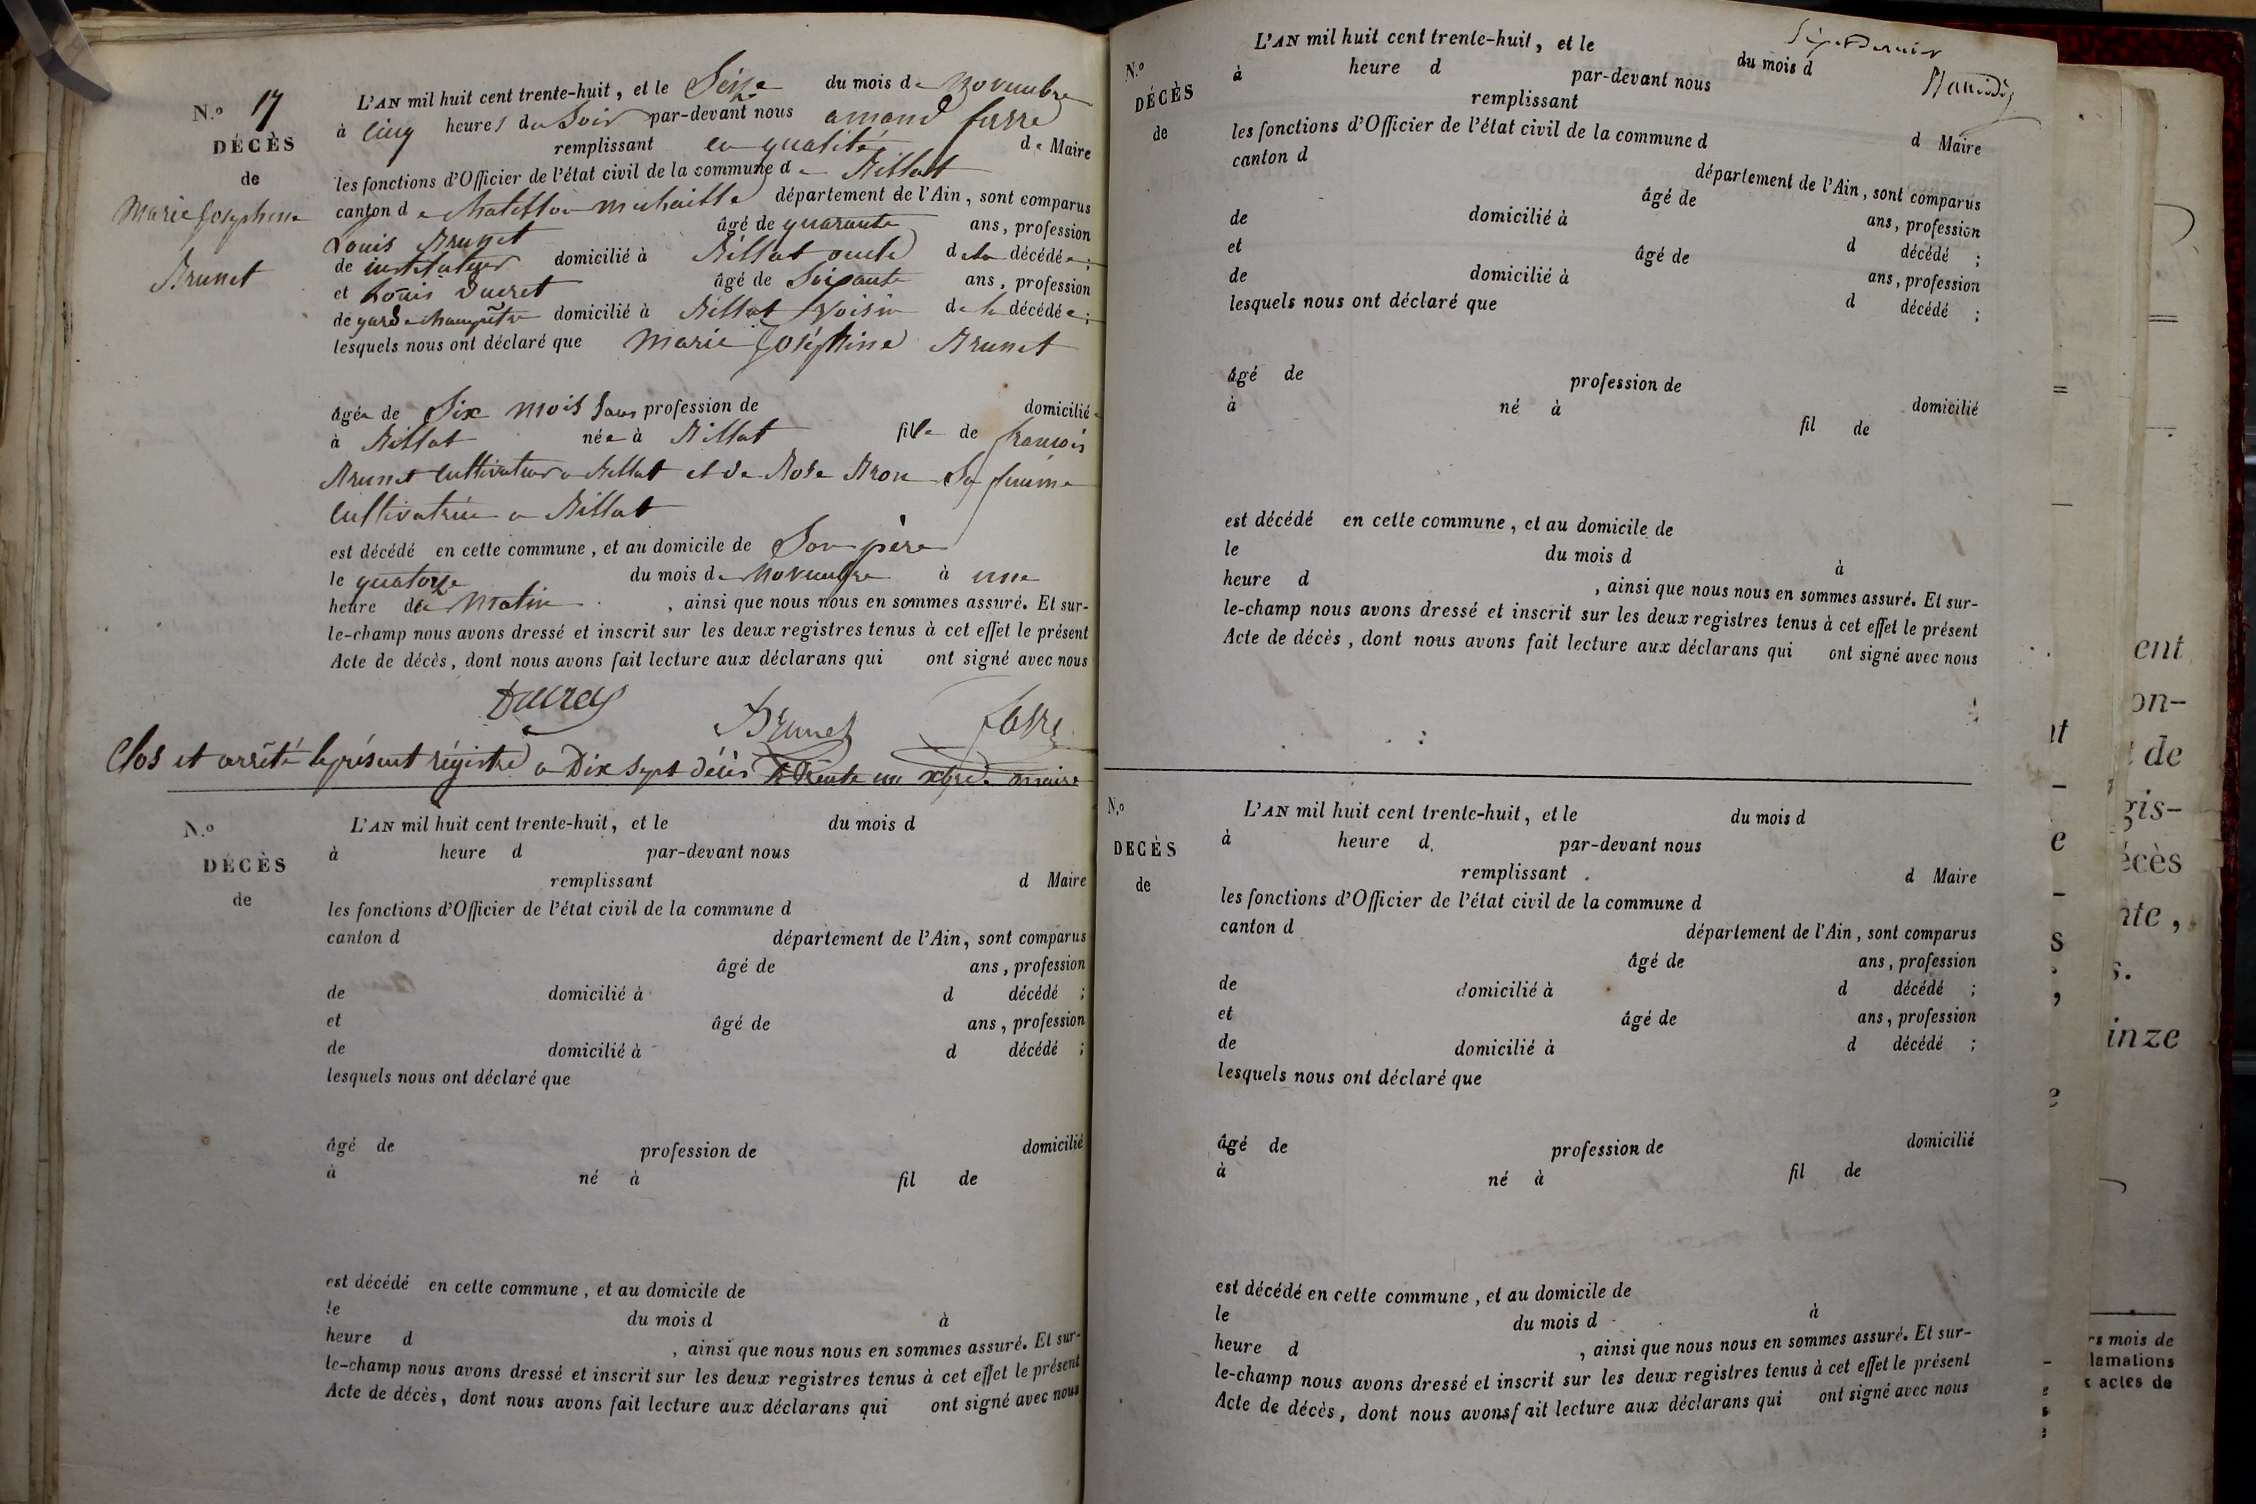 N.º 17
DÉCÈS
de
Marie Josephine
Brunet
L'AN mil huit cent trente-huit, et le Seize du mois de Novembre
à Cinq heures du Soir par-devant nous amand favre
remplissant en qualité de Maire
les fonctions d'Officier de l'état civil de la commune de Billiat
canton de Chatillon michaille département de l'Ain, sont comparus
Louis Brunet âgé de quarante ans, profession
de instituteur domicilié à Billiat oncle de la décédée;
et Louis Ducret âgé de Soixante ans, profession
de garde champêtre domicilié à Billiat Voisin de la décédée;
lesquels nous ont déclaré que Marie Joséphine Brunet
âgée de Six mois Sans profession de domiciliée
à Billiat née à Billiat fille de françois
Brunet Cultivateur a Billiat et de Rose Bron Sa femme
Cultivatrice a Billiat
est décédé en cette commune, et au domicile de Son père
le quatorze du mois de Novembre à une
heure du Matin, ainsi que nous nous en sommes assuré. Et sur-
le-champ nous avons dressé et inscrit sur les deux registres tenus à cet effet le présent
Acte de décès, dont nous avons fait lecture aux déclarans qui ont signé avec nous
Ducret Brunet favre
Clos et arrêté le présent régistre a Dix Sept décès le Trente un xbre. maire
N.º
DÉCÈS
de
L'AN mil huit cent trente-huit, et le du mois d
à heure d par-devant nous
remplissant d Maire
les fonctions d'Officier de l'état civil de la commune d
canton d département de l'Ain, sont comparus
âgé de ans, profession
de domicilié à d décédé ;
et âgé de ans, profession
de domicilié à d décédé ;
lesquels nous ont déclaré que
âgé de profession de domicilié
à né à fil de
est décédé en cette commune, et au domicile de
le du mois d à
heure d , ainsi que nous nous en sommes assuré. Et sur-
le-champ nous avons dressé et inscrit sur les deux registres tenus à cet effet le présent
Acte de décès, dont nous avons fait lecture aux déclarans qui ont signé avec nous
N.º
DÉCÈS
de
L'AN mil huit cent trente-huit, et le du mois d
à heure d par-devant nous
remplissant d Maire
les fonctions d'Officier de l'état civil de la commune d
canton d département de l'Ain, sont comparus
âgé de ans, profession
de domicilié à d décédé ;
et âgé de ans, profession
de domicilié à d décédé ;
lesquels nous ont déclaré que
âgé de profession de domicilié
à né à fil de
est décédé en cette commune, et au domicile de
le du mois d à
heure d , ainsi que nous nous en sommes assuré. Et sur-
le-champ nous avons dressé et inscrit sur les deux registres tenus à cet effet le présent
Acte de décès, dont nous avons fait lecture aux déclarans qui ont signé avec nous
N.º
DECÈS
de
L'AN mil huit cent trente-huit, et le du mois d
à heure d par-devant nous
remplissant d Maire
les fonctions d'Officier de l'état civil de la commune d
canton d département de l'Ain, sont comparus
âgé de ans, profession
de domicilié à d décédé ;
et âgé de ans, profession
de domicilié à d décédé ;
lesquels nous ont déclaré que
âgé de profession de domicilié
à né à fil de
est décédé en cette commune, et au domicile de
le du mois d à
heure d , ainsi que nous nous en sommes assuré. Et sur-
le-champ nous avons dressé et inscrit sur les deux registres tenus à cet effet le présent
Acte de décès, dont nous avons fait lecture aux déclarans qui ont signé avec nous
ent
on-
de
gis-
écès
nte,
s.
inze
rs mois de
lamations
actes de